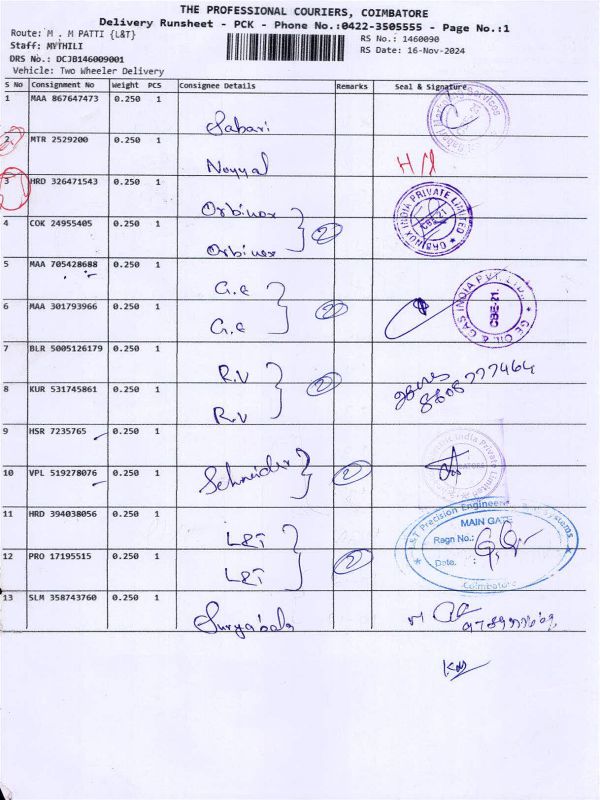 THE PROFESSIONAL COURIERS, COIMBATORE
Delivery Runsheet - PCK - Phone No.:0422-3505555 - Page No.:1
Route: M . M PATTI {L&T}
RS No.: 1460090
Staff: MYTHILI
RS Date: 16-Nov-2024
DRS No.: DCJB146009001
Vehicle: Two Wheeler Delivery
S No Consignment No Weight PCS Consignee Details Remarks Seal & Signature
1 MAA 867647473 0.250 1 Sabari
2 MTR 2529200 0.250 1 Noyyal
3 HRD 326471543 0.250 1 Orbinox
4 COK 24955405 0.250 1 Orbinox 2
ORBINOX INDIA PRIVATE LIMITED
CBE-21
5 MAA 705428688 0.250 1 G.E
6 MAA 301793966 0.250 1 G.E 2
GE OIL & GAS INDIA PVT. LTD.
CBE-21
7 BLR 5005126179 0.250 1 R.V
8 KUR 531745861 0.250 1 R.V 2
8608777464
9 HSR 7235765 0.250 1
10 VPL 519278076 0.250 1 Schneider 2
India Private Limited
11 HRD 394038056 0.250 1 L&T
12 PRO 17195515 0.250 1 L&T 2
L&T Precision Engineering Systems
MAIN GATE
Regn No.:
Date.
Coimbatore
13 SLM 358743760 0.250 1 Suryabala